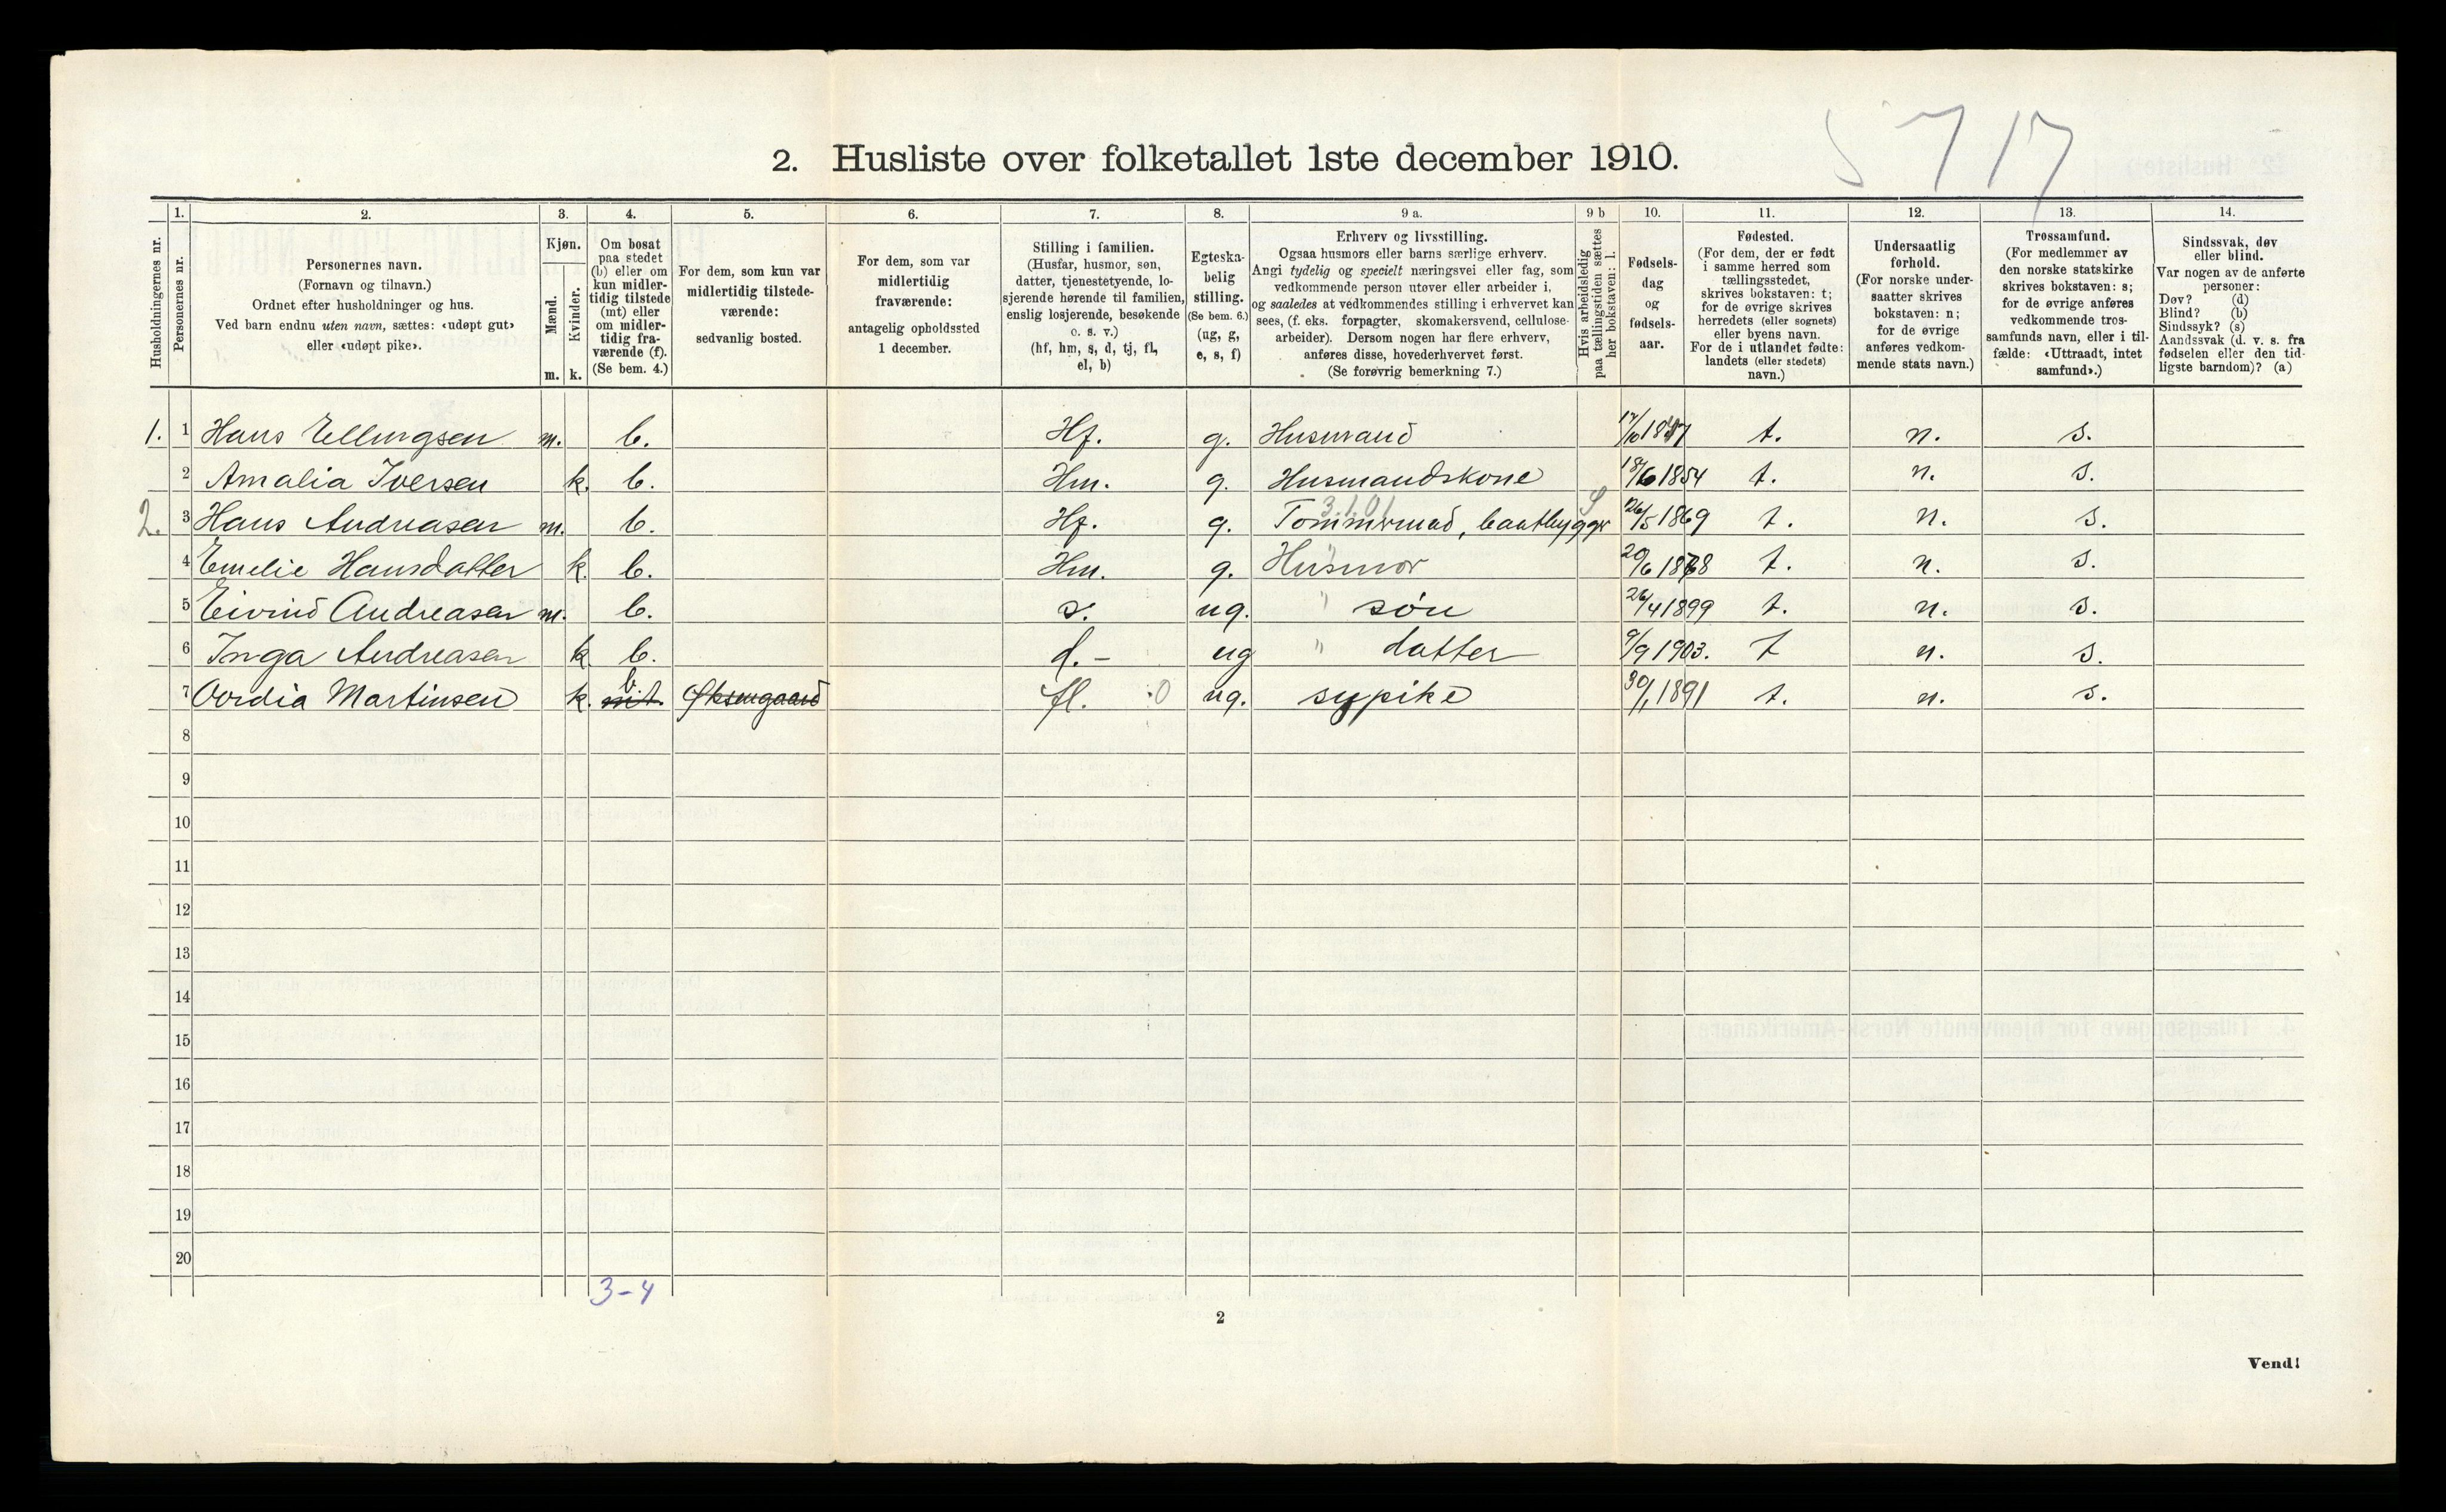 5 7 17
2. Husliste over folketallet 1ste december 1910.
Husholdningernes nr.
1.
Personernes nr.
2.
Personernes navn.
(Fornavn og tilnavn.)
Ordnet efter husholdninger og hus.
Ved barn endnu uten navn, sættes: «udøpt gut»
eller «udøpt pike».
3.
Kjøn.
Mænd.
Kvinder.
m. k.
4.
Om bosat
paa stedet
(b) eller om
kun midler-
tidig tilstede
(mt) eller
om midler-
tidig fra-
værende (f).
(Se bem. 4.)
5.
For dem, som kun var
midlertidig tilstede-
værende:
sedvanlig bosted.
6.
For dem, som var
midlertidig
fraværende:
antagelig opholdssted
1 december.
7.
Stilling i familien.
(Husfar, husmor, søn,
datter, tjenestetyende, lo-
sjerende hørende til familien,
enslig losjerende, besøkende
o. s. v.)
(hf, hm, s, d, tj, fl,
el, b)
8.
Egteska-
belig
stilling.
(Se bem. 6.)
(ug, g,
e, s, f)
9 a.
Erhverv og livsstilling.
Ogsaa husmors eller barns særlige erhverv.
Angi tydelig og specielt næringsvei eller fag, som
vedkommende person utøver eller arbeider i,
og saaledes at vedkommendes stilling i erhvervet kan
sees, (f. eks. forpagter, skomakersvend, cellulose-
arbeider). Dersom nogen har flere erhverv,
anføres disse, hovederhvervet først.
(Se forøvrig bemerkning 7.)
9 b
Hvis arbeidsledig
paa tællingstiden sættes
her bokstaven: l.
10.
Fødsels-
dag
og
fødsels-
aar.
11.
Fødested.
(For dem, der er født
i samme herred som
tællingsstedet,
skrives bokstaven: t;
for de øvrige skrives
herredets (eller sognets)
eller byens navn.
For de i utlandet fødte:
landets (eller stedets)
navn.)
12.
Undersaatlig
forhold.
(For norske under-
saatter skrives
bokstaven: n;
for de øvrige
anføres vedkom-
mende stats navn.)
13.
Trossamfund.
(For medlemmer av
den norske statskirke
skrives bokstaven: s;
for de øvrige anføres
vedkommende tros-
samfunds navn, eller i til-
fælde: «Uttraadt, intet
samfund».)
14.
Sindssvak, døv
eller blind.
Var nogen av de anførte
personer:
Døv? (d)
Blind? (b)
Sindssyk? (s)
Aandssvak (d. v. s. fra
fødselen eller den tid-
ligste barndom)? (a)
1. 1 Hans Ellingsen m. b. Hf. g. Husmand 17/10 1847 t. n. s.
2 Amalia Iversen k. b. Hm. g. Husmandskone 18/6 1854 t. n. s.
3.1.01
2. 3 Hans Andreasen m. b. Hf. g. Tømmrmad, baatbygger 26/5 1869 t. n. s.
4 Emelie Hansdatter k. b. Hm. g. Husmor 20/6 1878 t. n. s.
5 Eivind Andreasen m. b. s. ug. " søn 26/4 1899 t. n. s.
6 Inga Andreasen k b. d. - ug " datter 9/9 1903. t n. s.
7 Oordia Martinsen k. b. mt. Øksengaard fl. 0 ug. sypike 30/1 1891 t. n. s.
8
9
10
11
12
13
14
15
16
17
18
19
20
3-4
2
Vend!